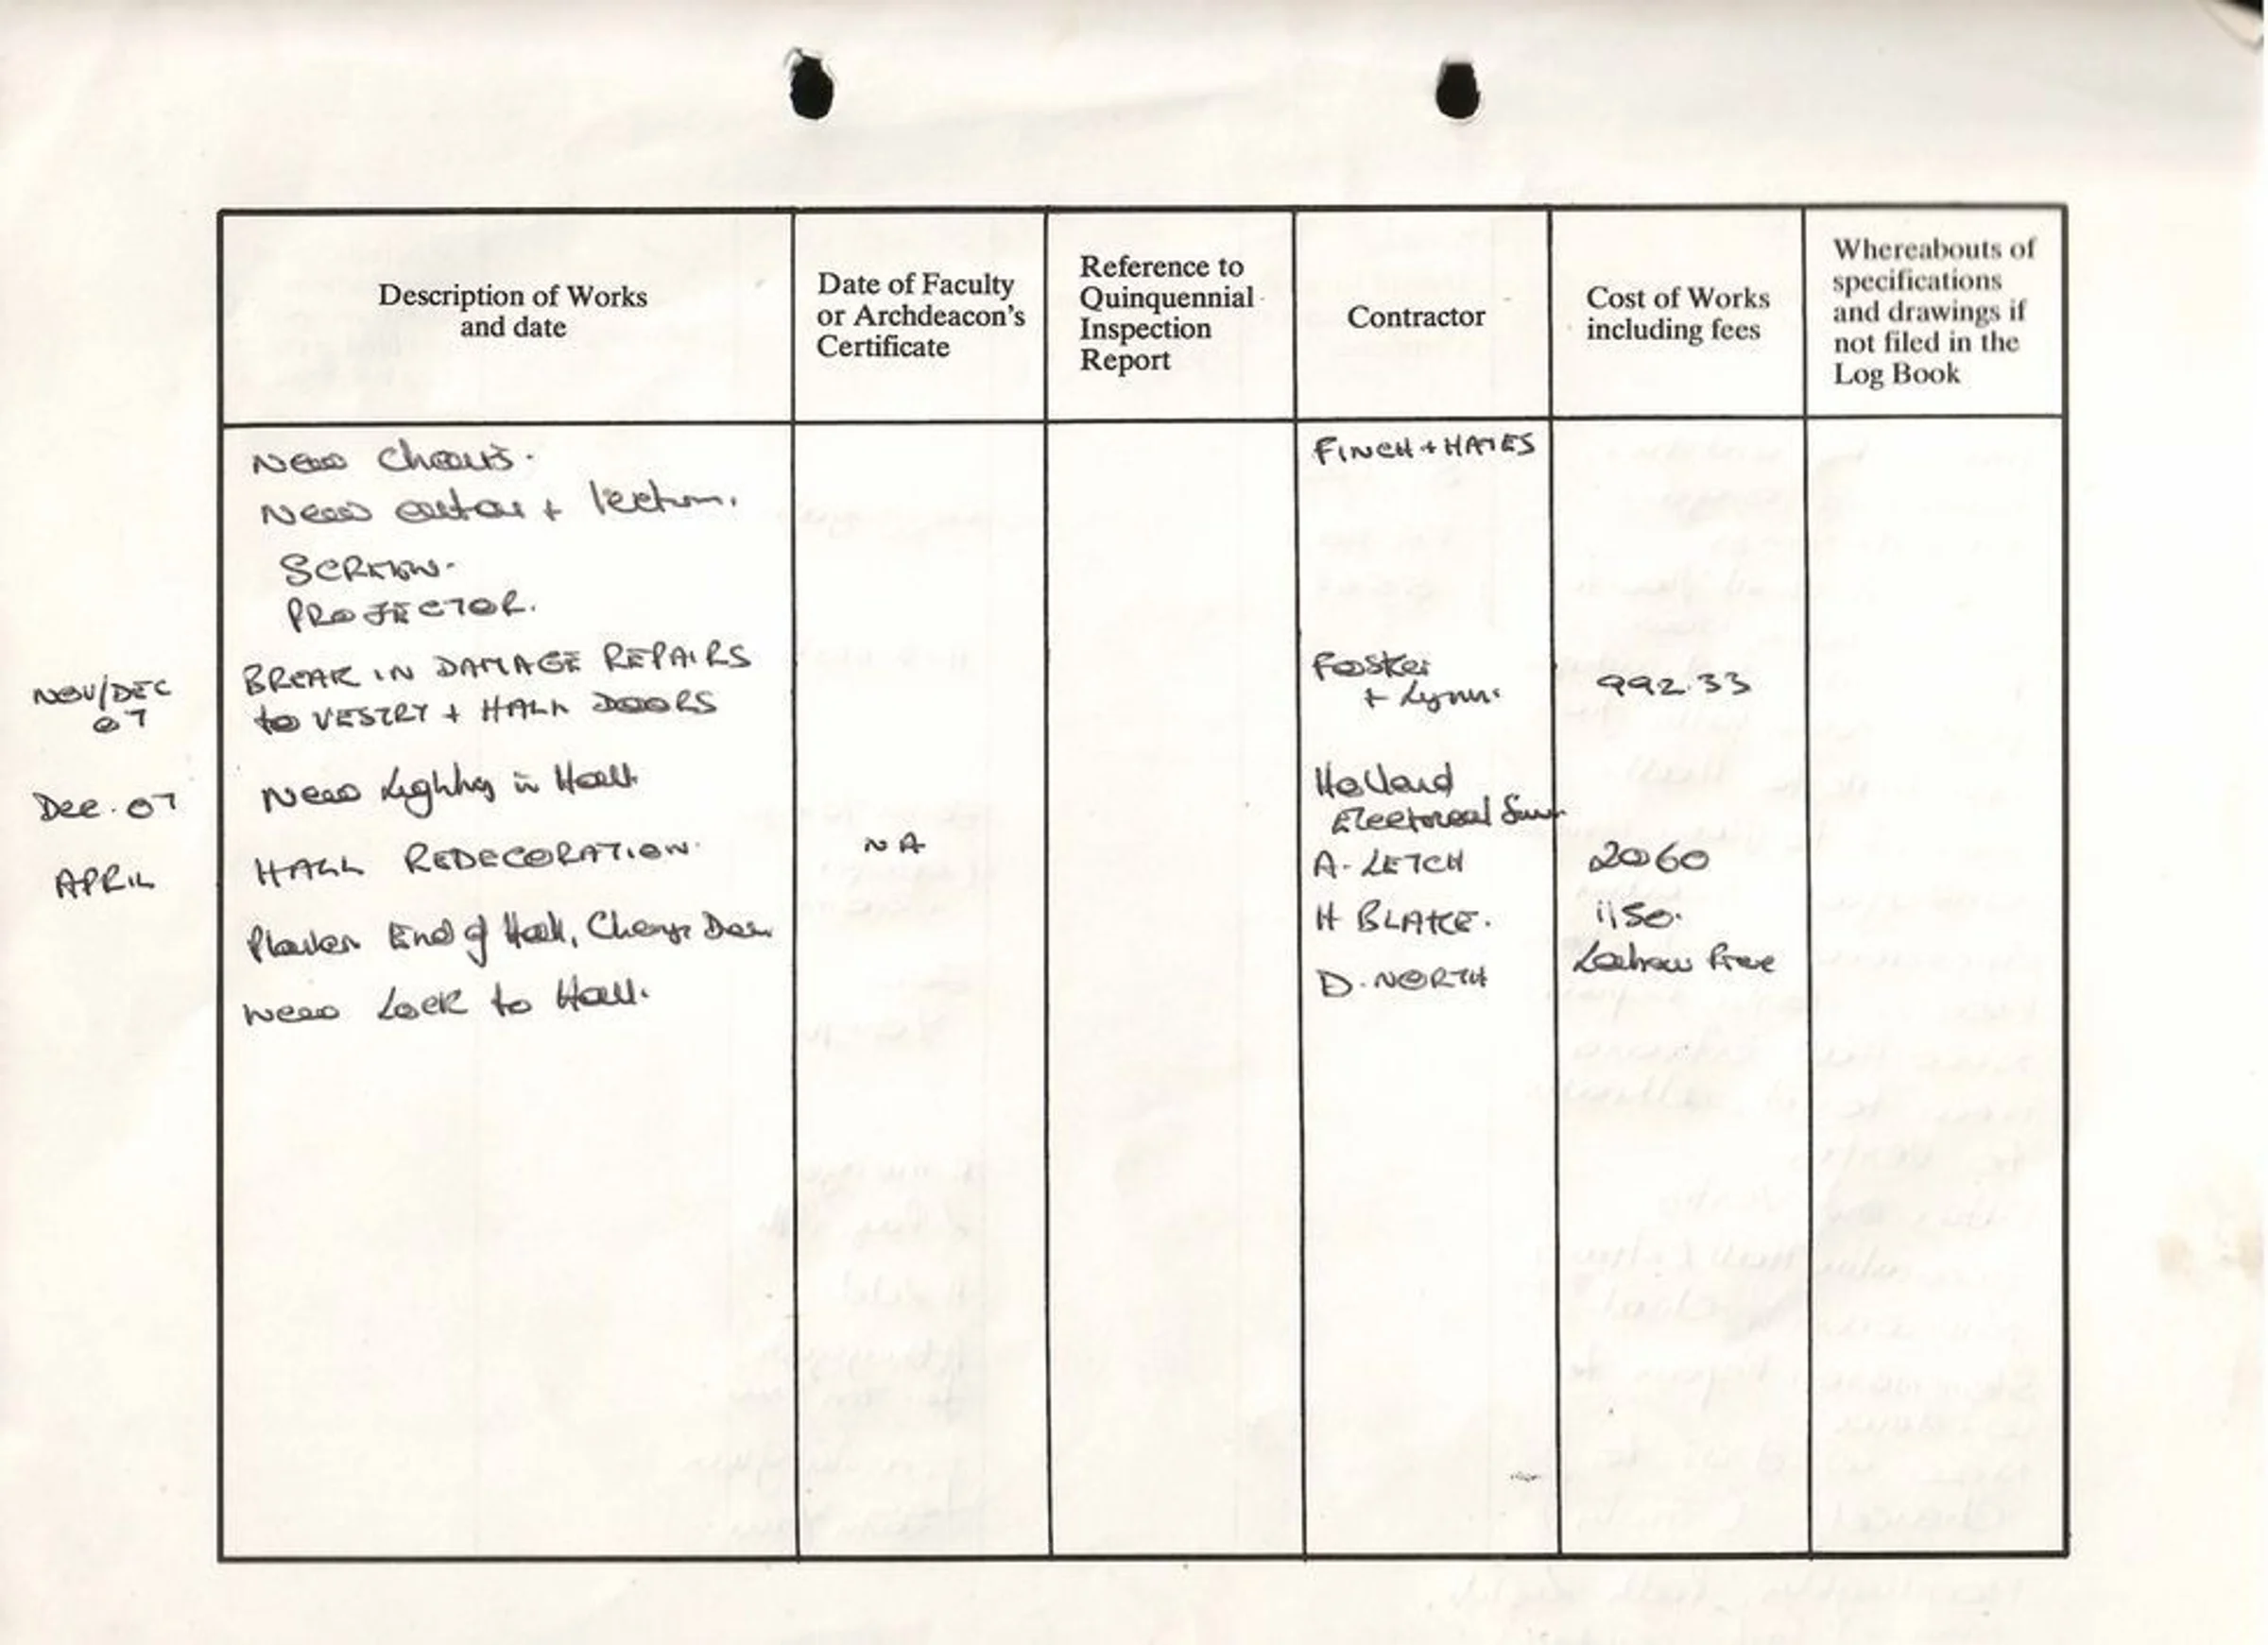 Description of Works
and date
Date of Faculty
or Archdeacon's
Certificate
Reference to
Quinquennial
Inspection
Report
Contractor
Cost of Works
including fees
Whereabouts of
specifications
and drawings if
not filed in the
Log Book
New Chairs.
FINCH + HAYES
New altar + lectern.
SCREEN.
PROJECTOR.
NOV/DEC
07
BREAK IN DAMAGE REPAIRS
to VESTRY + HALL DOORS
Fosker
+ Lynn.
992.33
Dec. 07
New Lighting in Hall
Holland
Electrical
APRIL
HALL REDECORATION.
NA
A. LETCH
2060
Plaster End of Hall, Door
H BLAKE.
1150.
New Lock to Hall.
D. NORTH
Labour Free